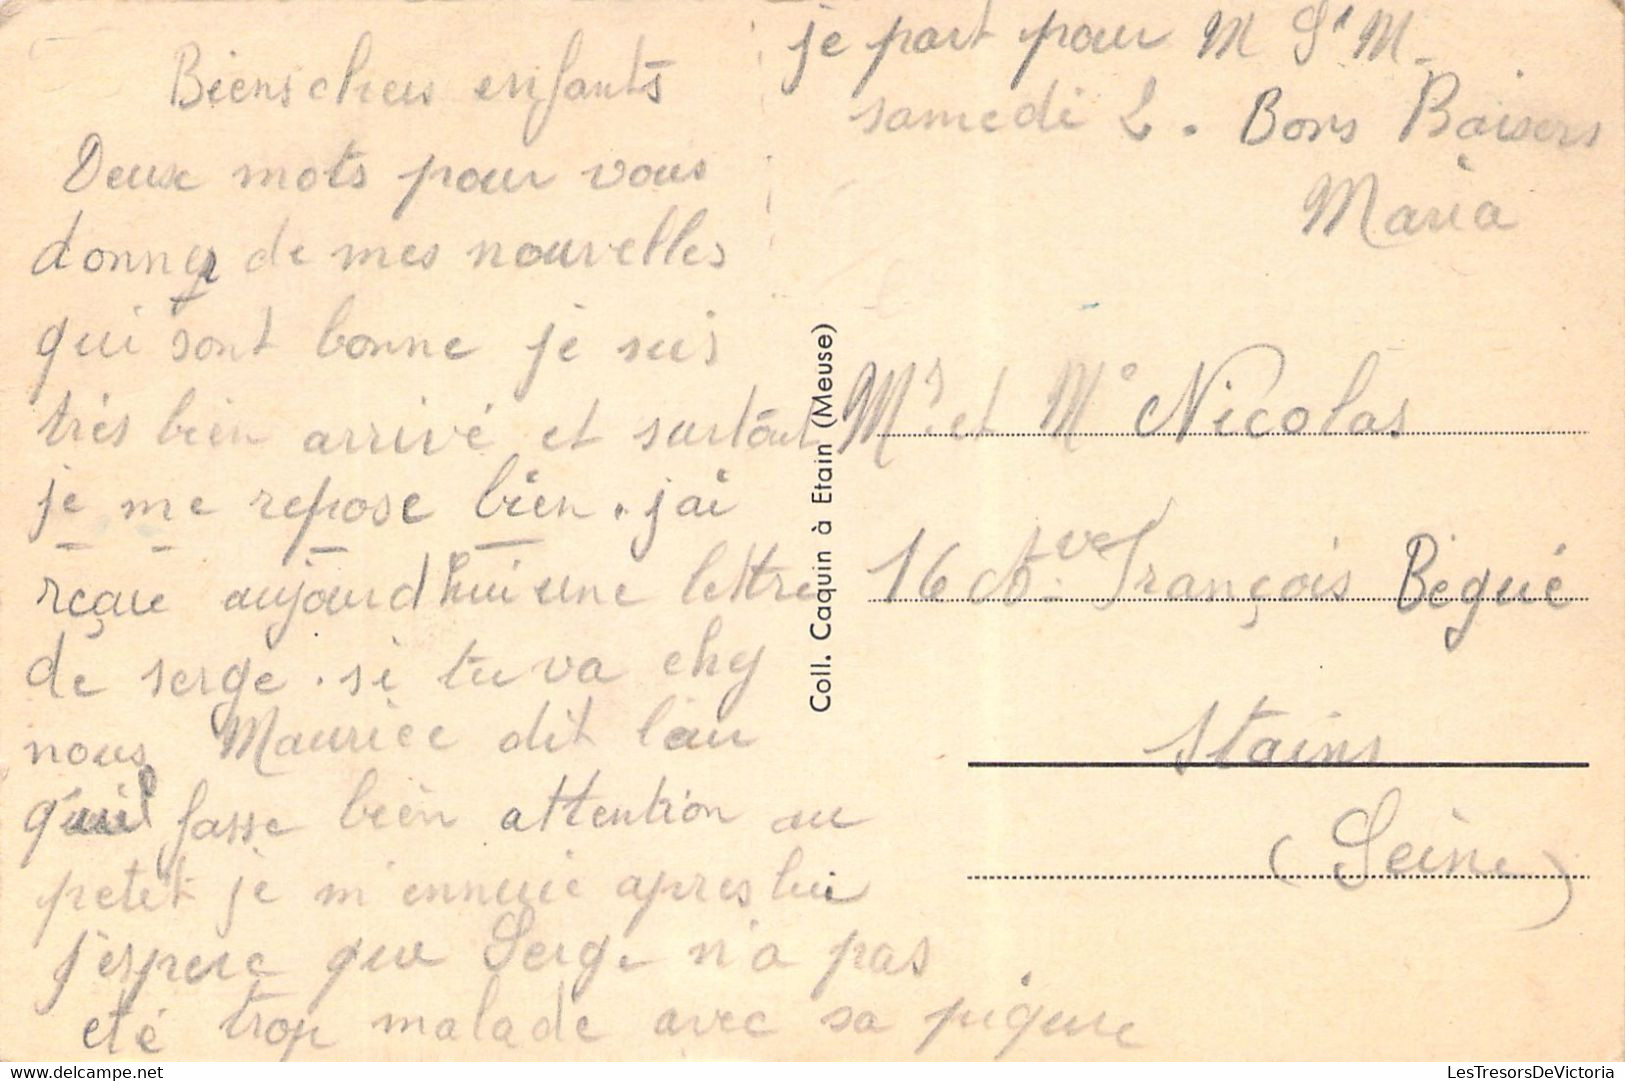 Biens chers enfants
Deux mots pour vous
donner de mes nouvelles
qui sont bonne je suis
très bien arrivé et surtout
je me repose bien. jai
rçau aujourd'hui une lettre
de serge. si tu va chez
nous Maurice dit l'au
qu'il fasse bien attention au
petit je m'ennuie apres lui
j'espere que Serge n'a pas
eté trop malade avec sa piqure
je part pour M St M.
samedi 2. Bons Baisers
Maria
Coll. Caquin à Etain (Meuse)
Mr et Me Nicolas
16 Ave François Bégué
Stains
(Seine)
LesTresorsDeVictoria